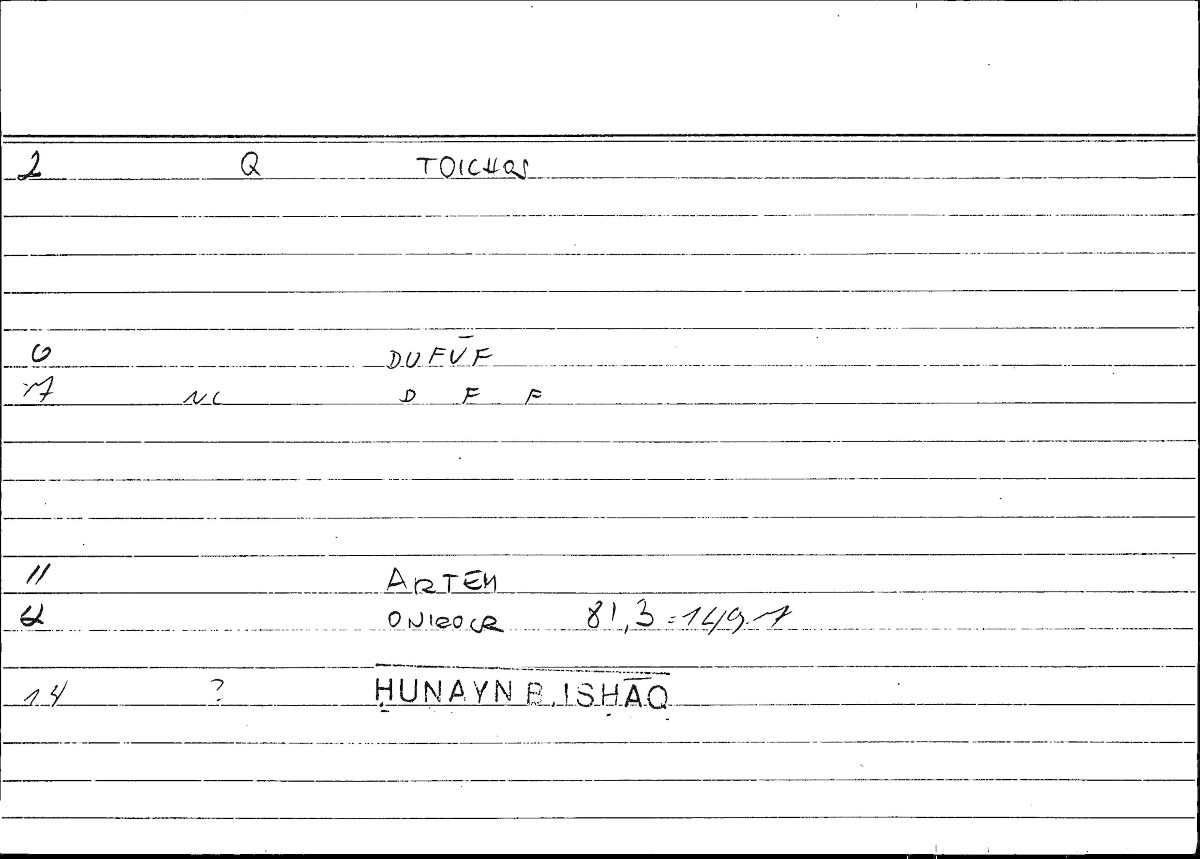 2 Q TOICHOS
6 DUFŪF
7 NC D F F
11 ARTEM
12 ONIROCR 81,3 = 149.7
14 ? ḤUNAYN B. ISḤĀQ